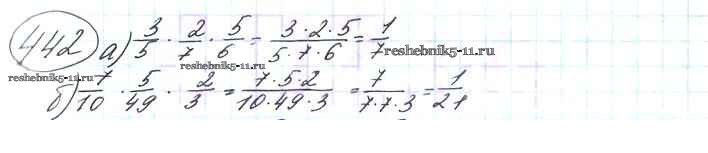 442 а) 3/5 · 2/7 · 5/6 = 3·2·5/5·7·6 = 1/7
reshebnik5-11.ru
reshebnik5-11.ru
reshebnik5-11.ru
б) 7/10 · 5/49 · 2/3 = 7·5·2/10·49·3 = 7/7·7·3 = 1/21